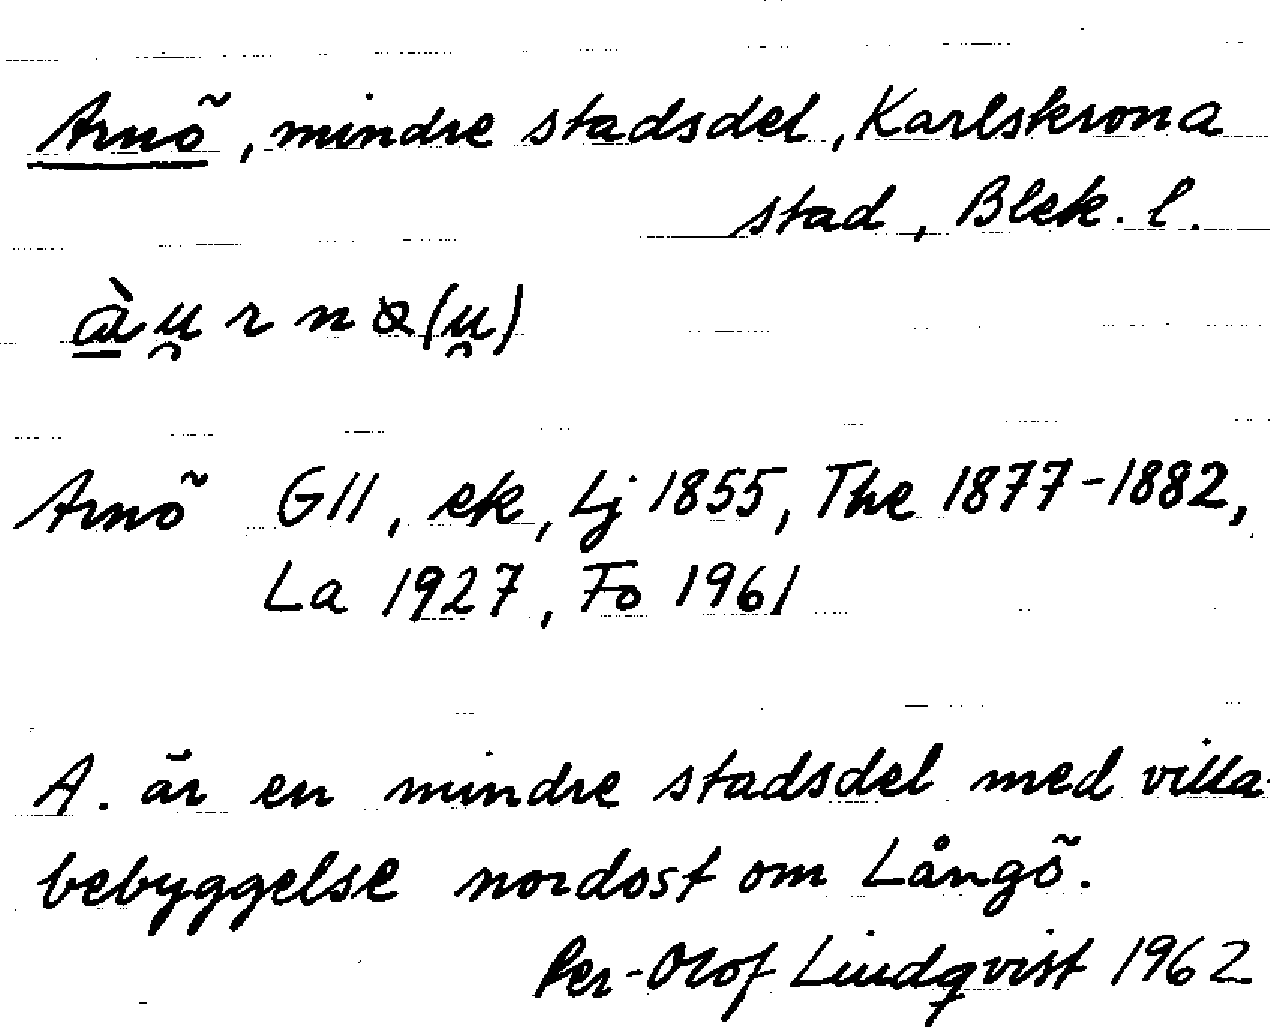 Arnö, mindre stadsdel, Karlskrona
stad, Blek. l.
à u̯ r n ꝍ (u̯)
Arnö GII, ek, Lj 1855, The 1877-1882,
La 1927, Fo 1961
A. är en mindre stadsdel med villa-
bebyggelse nordost om Långö.
Per-Olof Lindqvist 1962